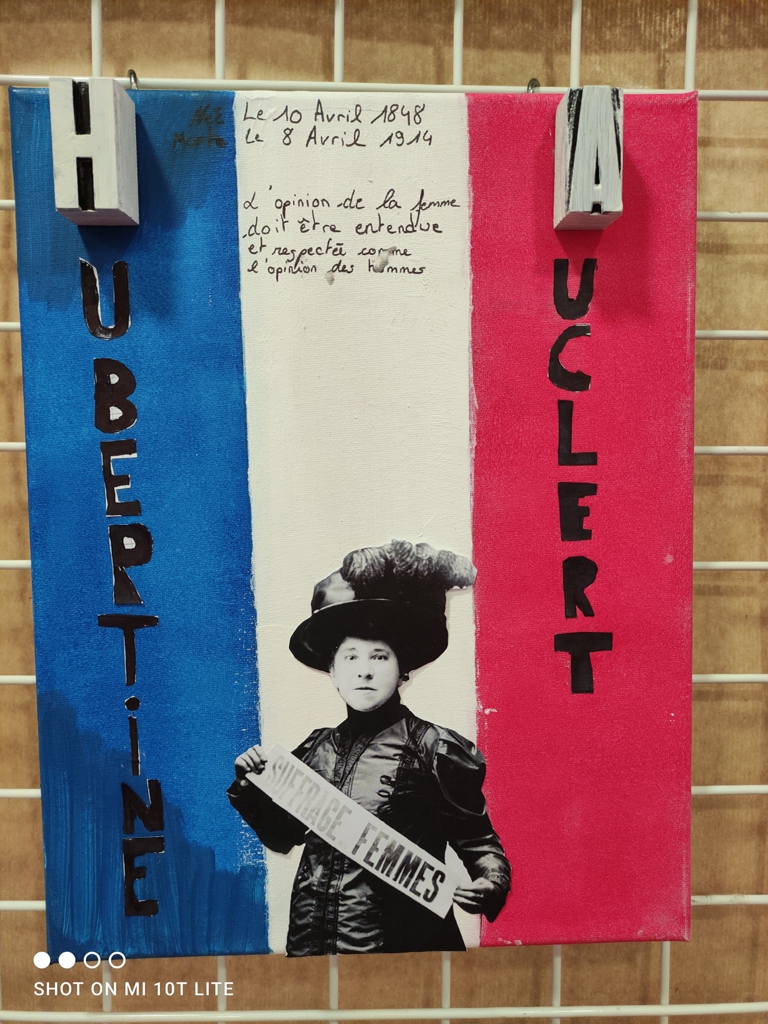 Née Le 10 Avril 1848
Morte Le 8 Avril 1914
L'opinion de la femme
doit être entendue
et respectée comme
l'opinion des hommes
HUBERTiNE
AUCLERT
SUFFRAGE FEMMES
SHOT ON MI 10T LITE